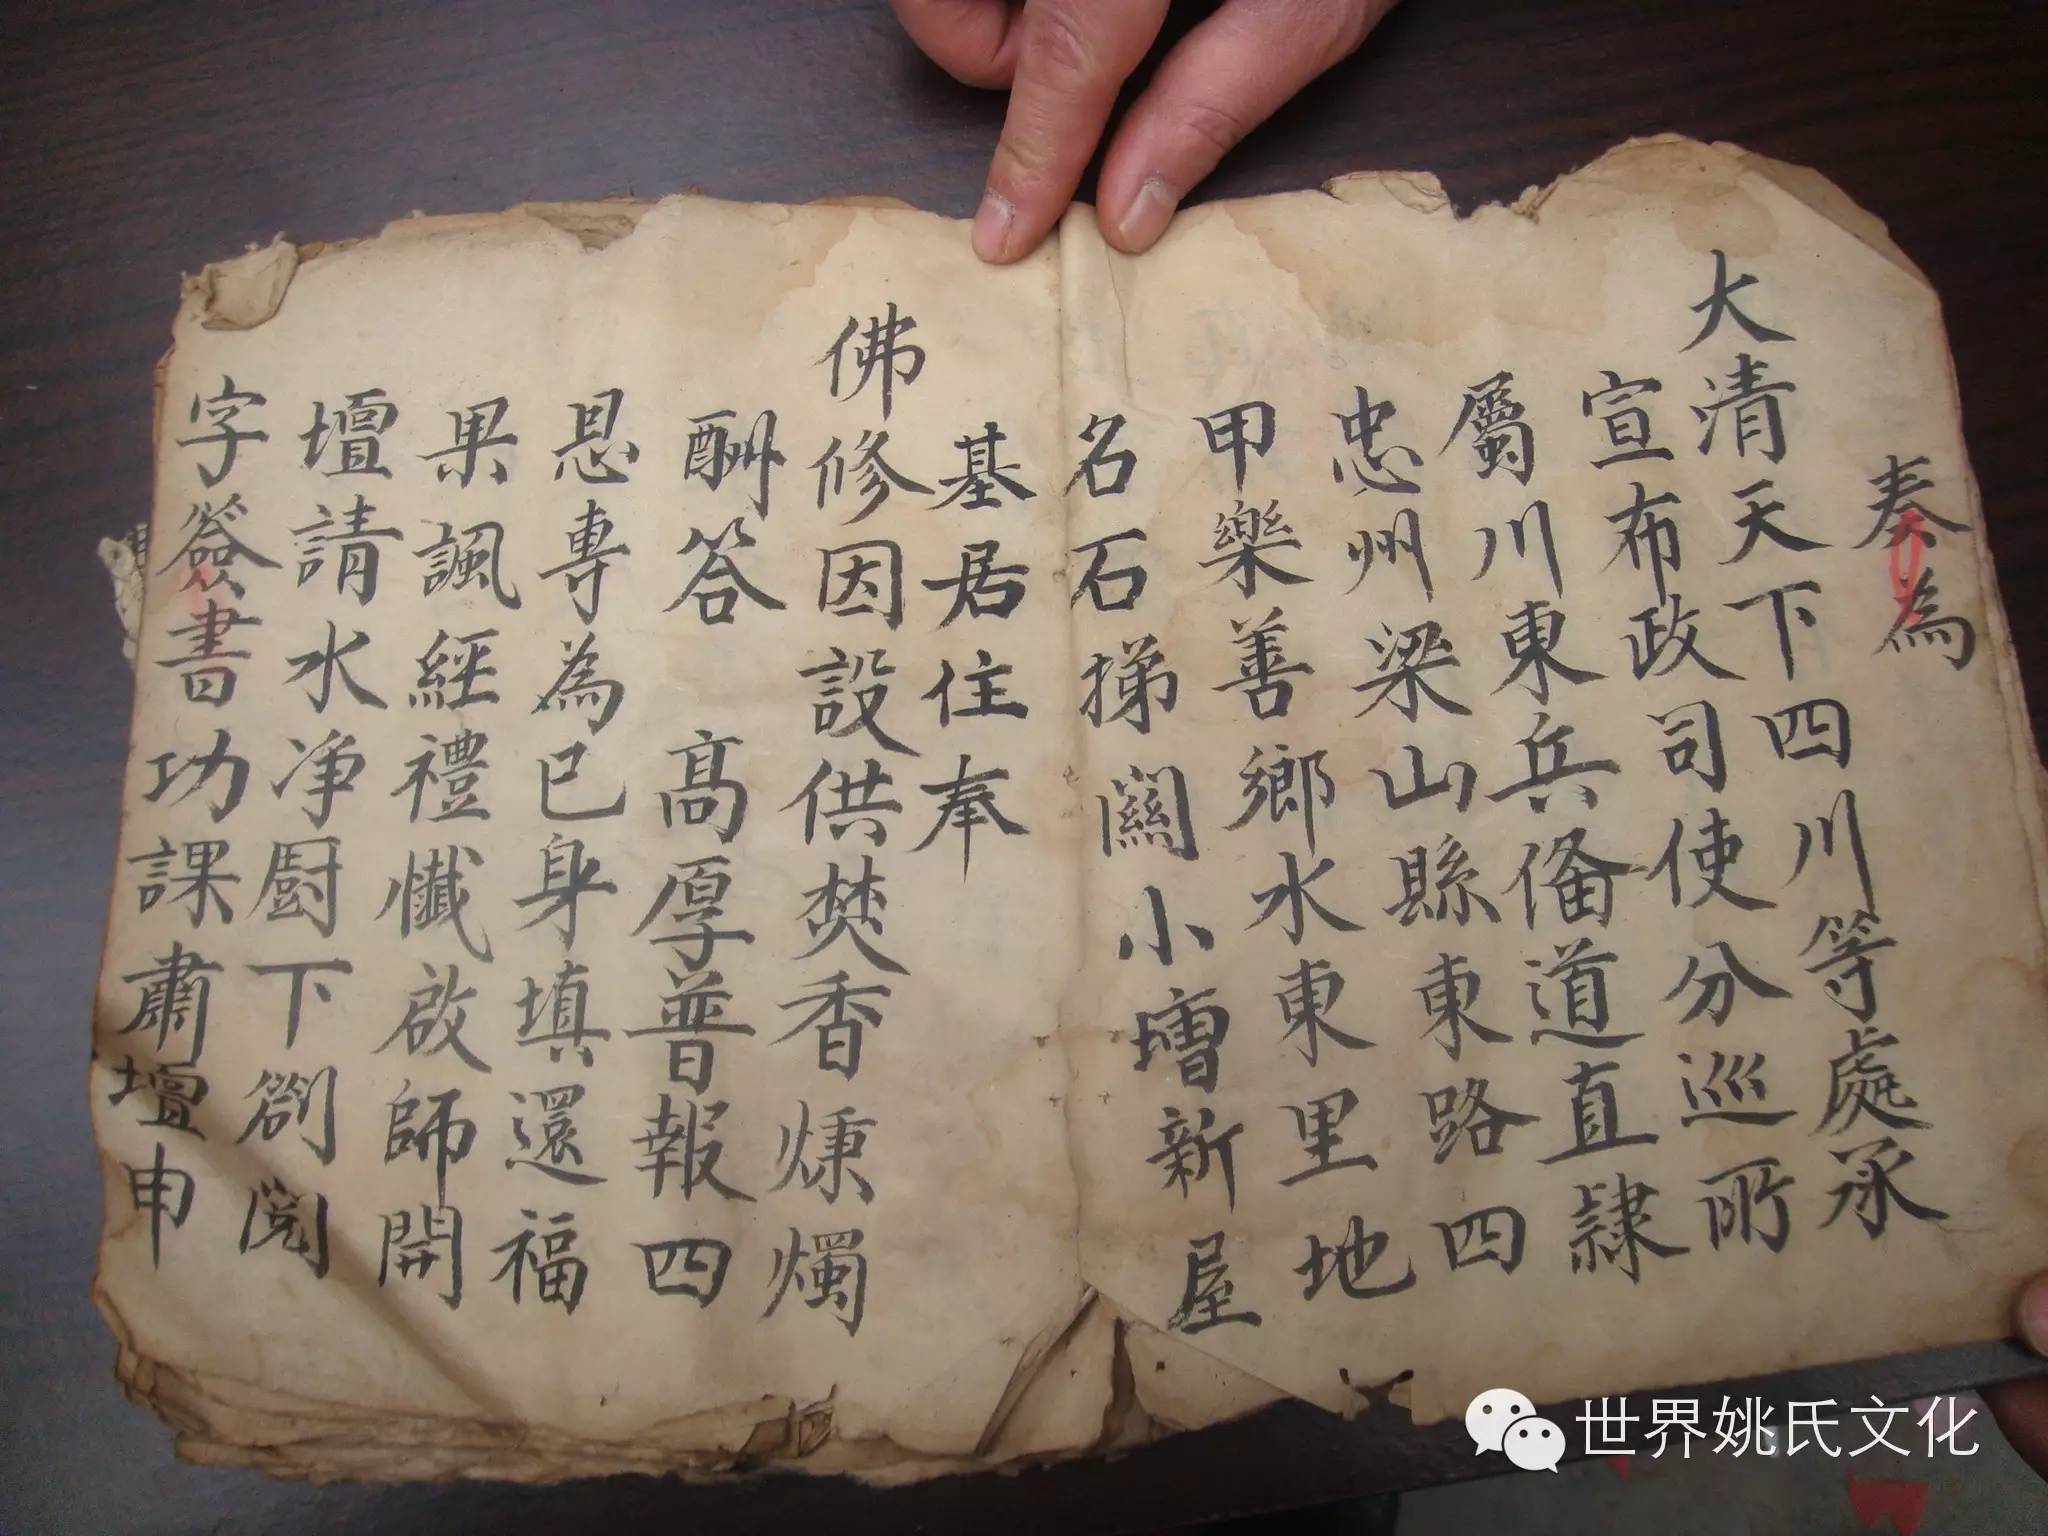 奏為
大清天下四川等處承
宣布政司使分巡所
屬川東兵俻道直隸
忠州梁山縣東路四
甲樂善鄉水東里地
名石梯關小壪新屋
基居住奉
佛修因設供焚香煉燭
酬答 高厚普報四
恩專為已身填還福
果諷經禮懺啟師開
壇請水净厨下劄閱
字簽書功課肅壇申
世界姚氏文化